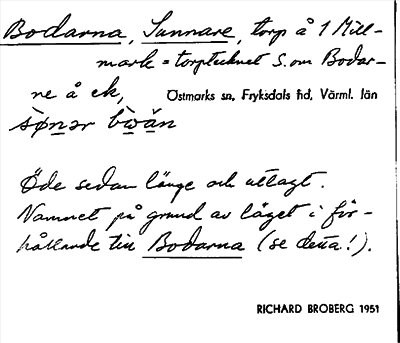 Bodarna, Sunnare, torp å 1 Mill-
mark = torptecknet S.om Bodar-
ne å ek, Östmarks sn, Fryksdals hd, Värml. län
sø̀nǝr bẁǎn
Öde sedan länge och utlagt.
Namnet på grund av läget i för-
hållande till Bodarna (se detta!).
RICHARD BROBERG 1951